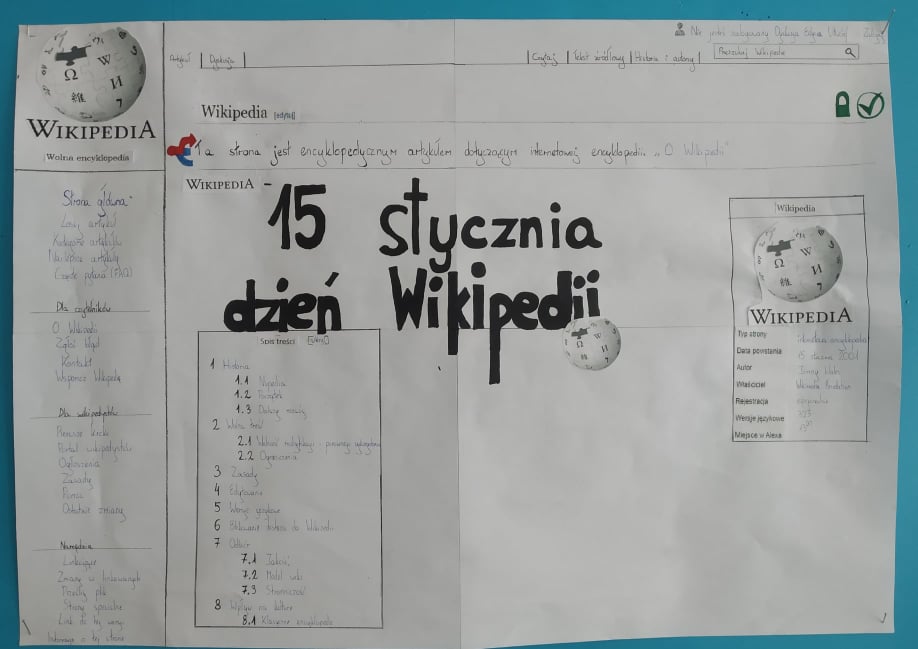 Nie jesteś zalogowany Dyskusja Edycje Utwórz Zaloguj
Artykuł Dyskusja
Czytaj Tekst źródłowy Historia i autorzy
Przeszukaj Wikipedię
WIKIPEDIA
Wolna encyklopedia
Wikipedia [edytuj]
Ta strona jest encyklopedycznym artykułem dotyczącym internetowej encyklopedii. „O Wikipedii"
WIKIPEDIA –
15 stycznia
dzień Wikipedii
Strona główna
Losuj artykuł
Kategorie artykułów
Najlepsze artykuły
Częste pytania (FAQ)
Dla czytelników
O Wikipedii
Zgłoś błąd
Kontakt
Wspomóż Wikipedię
Dla wikipedystów
Pierwsze kroki
Portal wikipedystów
Ogłoszenia
Zasady
Pomoc
Ostatnie zmiany
Narzędzia
Linkujące
Zmiany w linkowanych
Prześlij plik
Strony specjalne
Link do tej wersji
Informacje o tej stronie
Spis treści [ukryj]
1 Historia
1.1 Nupedia
1.2 Początek
1.3 Dalszy rozwój
2 Wolna treść
2.1
2.2 Ograniczenia
3 Zasady
4 Edytowanie
5 Wersje językowe
6 Blokowanie dostępu do Wikipedii
7 Odbiór
7.1 Jakość
7.2
7.3 Stronniczość
8 Wpływ na kulturę
8.1
Wikipedia
WIKIPEDIA
Typ strony internetowa encyklopedia
Data powstania 15 stycznia 2001
Autor Jimmy Wales
Właściciel Wikimedia Foundation
Rejestracja opcjonalna
Wersje językowe 323
Miejsce w Alexa